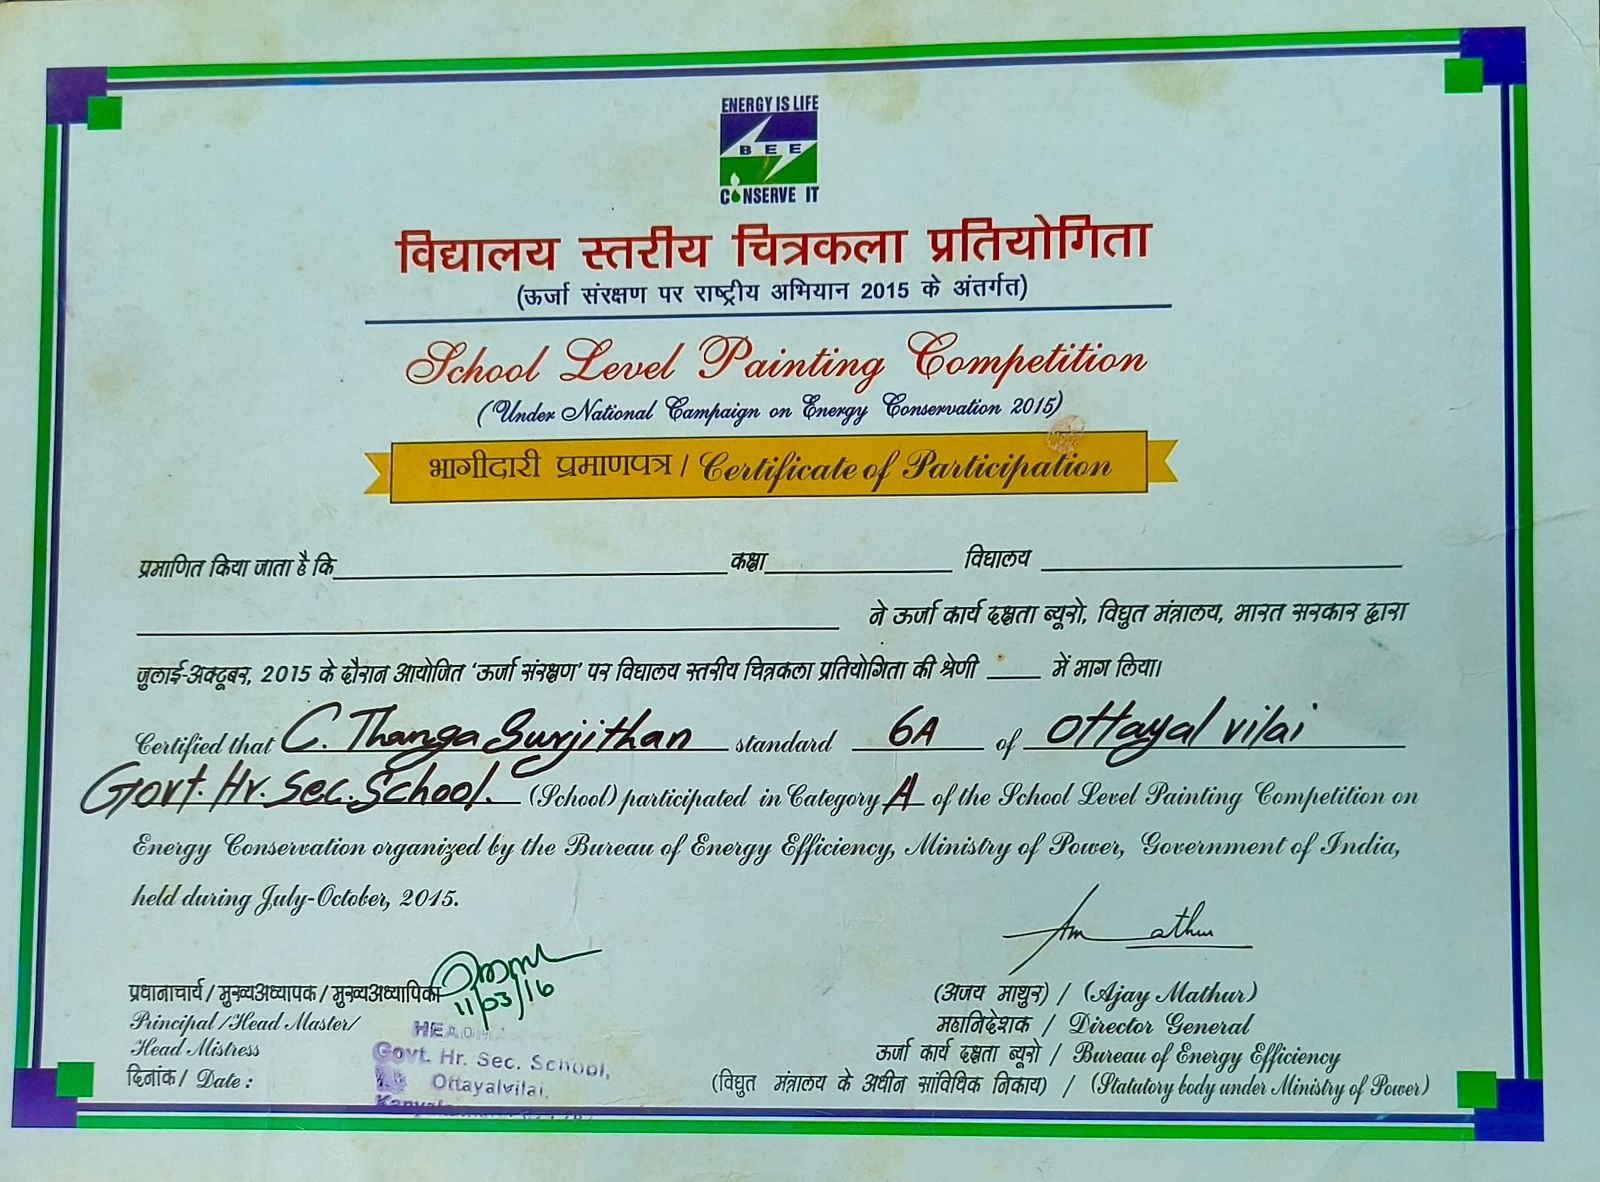 ENERGY IS LIFE
BEE
CONSERVE IT
विद्यालय स्तरीय चित्रकला प्रतियोगिता
(ऊर्जा संरक्षण पर राष्ट्रीय अभियान 2015 के अंतर्गत)
School Level Painting Competition
(Under National Campaign on Energy Conservation 2015)
भागीदारी प्रमाणपत्र / Certificate of Participation
प्रमाणित किया जाता है कि कक्षा विद्यालय
ने ऊर्जा कार्य दक्षता ब्यूरो, विद्युत मंत्रालय, भारत सरकार द्वारा
जुलाई-अक्टूबर, 2015 के दौरान आयोजित 'ऊर्जा संरक्षण' पर विद्यालय स्तरीय चित्रकला प्रतियोगिता की श्रेणी में भाग लिया।
Certified that C. Thanga Surjithan standard 6A of Ottayal vilai
Govt. Hr. Sec. School. (School) participated in Category A of the School Level Painting Competition on
Energy Conservation organized by the Bureau of Energy Efficiency, Ministry of Power, Government of India,
held during July-October, 2015.
11/03/16
प्रधानाचार्य / मुख्यअध्यापक / मुख्यअध्यापिका
Principal / Head Master/
Head Mistress
दिनांक / Date :
Govt. Hr. Sec. School,
Ottayalvilai,
(अजय माथुर) / (Ajay Mathur)
महानिदेशक / Director General
ऊर्जा कार्य दक्षता ब्यूरो / Bureau of Energy Efficiency
(विद्युत मंत्रालय के अधीन सांविधिक निकाय) / (Statutory body under Ministry of Power)